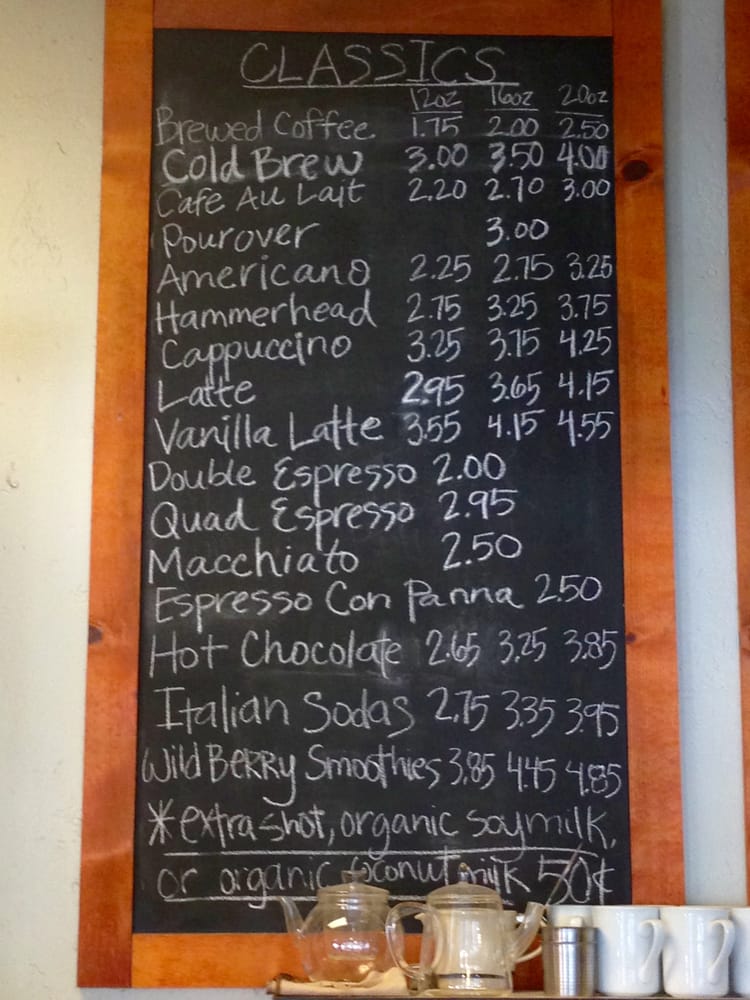 CLASSICS
12oz 16oz 20oz
Brewed Coffee 1.75 2.00 2.50
Cold Brew 3.00 3.50 4.00
Cafe Au Lait 2.20 2.70 3.00
Pourover 3.00
Americano 2.25 2.75 3.25
Hammerhead 2.75 3.25 3.75
Cappuccino 3.25 3.75 4.25
Latte 2.95 3.65 4.15
Vanilla Latte 3.55 4.15 4.55
Double Espresso 2.00
Quad Espresso 2.95
Macchiato 2.50
Espresso Con Panna 2.50
Hot Chocolate 2.65 3.25 3.85
Italian Sodas 2.75 3.35 3.95
Wild BERRY Smoothies 3.85 4.45 4.85
*extra shot, organic soymilk,
or organic coconut milk 50¢